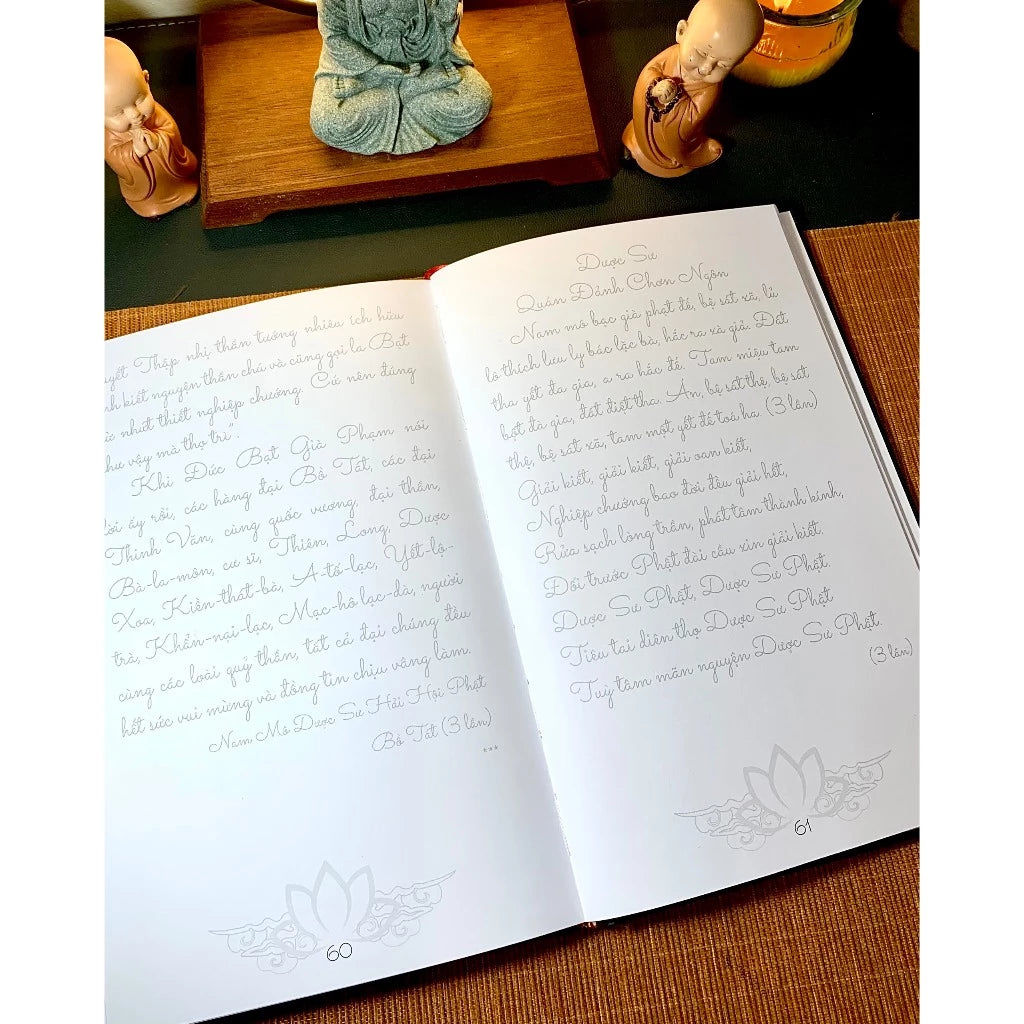 Thập nhị thần tướng nhiêu ích hữu
kiết nguyện thần chú và cũng gọi là Bạt
nhứt thiết nghiệp chướng. Cứ nên đúng
như vậy mà thọ trì”.
Khi Đức Bạt Già Phạm nói
lời ấy rồi, các hàng đại Bồ Tát, các đại
Thinh Văn, cùng quốc vương, đại thần,
Bà-la-môn, cư sĩ, Thiên, Long, Dược
Xoa, Kiền-thát-bà, A-tố-lạc, Yết-lộ-
trà, Khẩn-nại-lạc, Mạc-hô lạc-dà, người
cùng các loài quỷ thần, tất cả đại chúng đều
hết sức vui mừng và đồng tin chịu vâng làm.
Nam Mô Dược Sư Hải Hội Phật
Bồ Tát (3 lần)
***
60
Dược Sư
Quán Đảnh Chơn Ngôn
Nam mô bạc già phạt đế, bệ sát xã, lủ
lô thích lưu ly bác lặc bà, hắc ra xà giả. Đát
tha yết đa gia, a ra hắc đế. Tam miệu tam
bột đà gia, đát điệt tha. Án, bệ sát thệ, bệ sát
thệ, bệ sát xã, tam một yết đế toá ha. (3 lần)
Giải kiết, giải kiết, giải oan kiết,
Nghiệp chướng bao đời đều giải hết,
Rửa sạch lòng trần, phát tâm thành kính,
Đối trước Phật đài cầu xin giải kiết.
Dược Sư Phật, Dược Sư Phật.
Tiêu tai diên thọ Dược Sư Phật
Tuỳ tâm mãn nguyện Dược Sư Phật.
(3 lần)
61